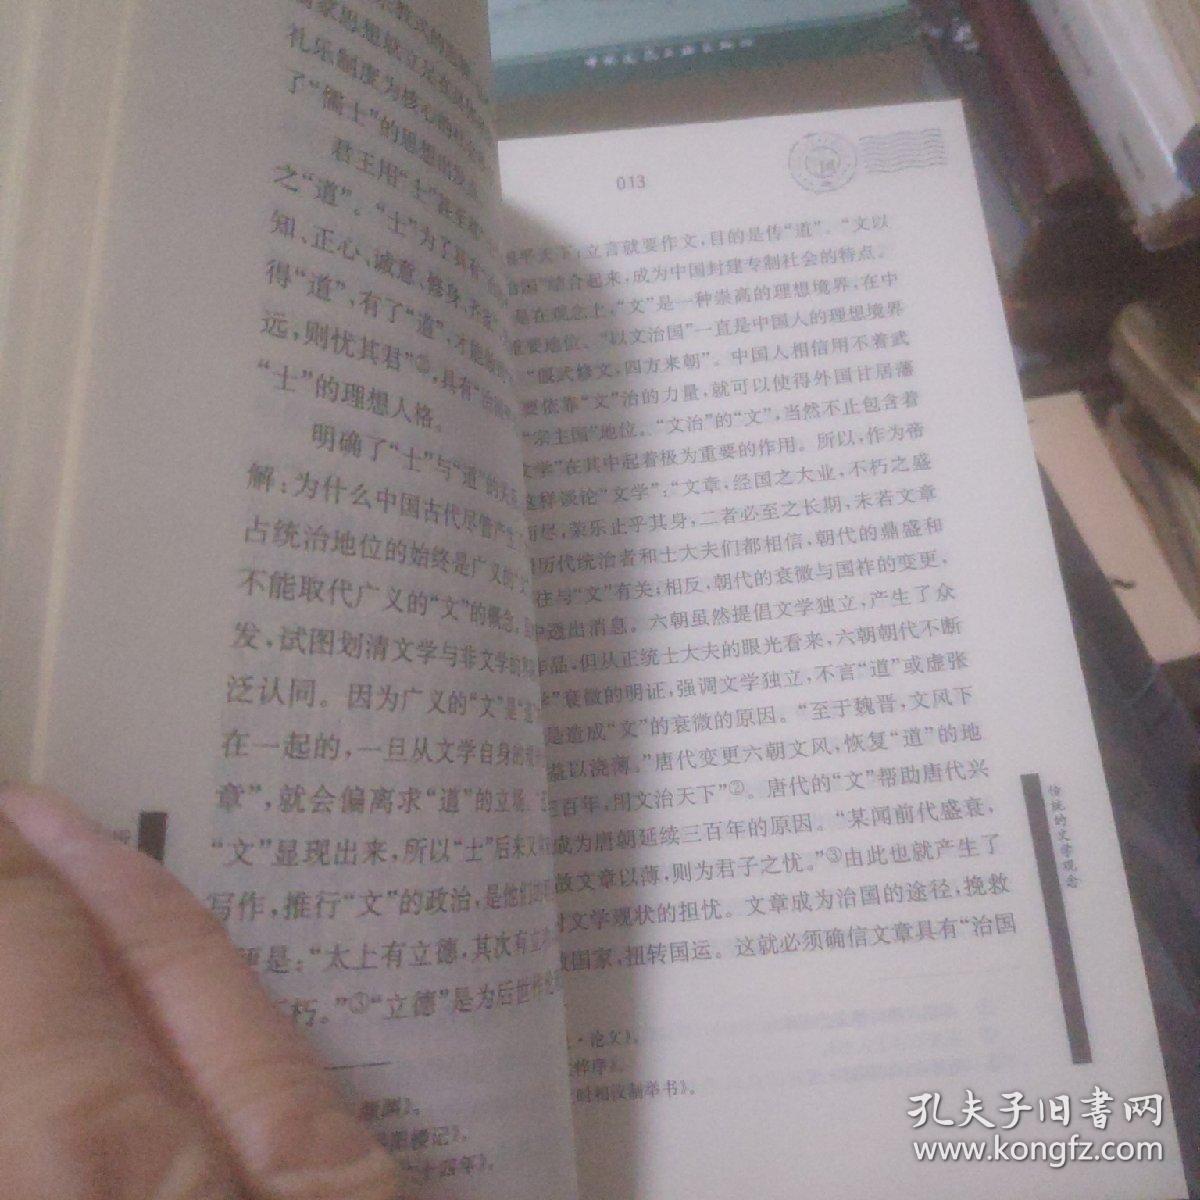 礼乐制度为核心的
了“儒士”的思想
君王用“士”
之“道”。“士”为了具有
知、正心、诚意、修身、齐家
得“道”，有了“道”，才能
远，则忧其君”②，具有
“士”的理想人格。
明确了“士”与“道”的关系
解：为什么中国古代尽管产生
占统治地位的始终是广义的“文
不能取代广义的“文”的概念
发，试图划清文学与非文学的
泛认同。因为广义的“文”是“道
在一起的，一旦从文学自身的
章”，就会偏离求“道”的立场
“文”显现出来，所以“士”后来又
写作，推行“文”的政治，是他们的
是：“太上有立德，其次有立
朽。”③“立德”是为后世
楼记》。
十四年》。
013
平天下；立言就要作文，目的是传“道”。“文以
治国”结合起来，成为中国封建专制社会的特点。
是在观念上，“文”是一种崇高的理想境界，在中
重要地位、“以文治国”一直是中国人的理想境界
“偃武修文，四方来朝”。中国人相信用不着武
要依靠“文”治的力量，就可以使得外国甘居藩
“宗主国”地位。“文治”的“文”，当然不止包含着
文学”在其中起着极为重要的作用。所以，作为帝
这样谈论“文学”：“文章，经国之大业，不朽之盛
而尽，荣乐止乎其身，二者必至之长期，未若文章
历代统治者和士大夫们都相信，朝代的鼎盛和
往与“文”有关；相反，朝代的衰微与国祚的变更，
中透出消息。六朝虽然提倡文学独立，产生了众
作品，但从正统士大夫的眼光看来，六朝朝代不断
学”衰微的明证，强调文学独立，不言“道”或虚张
是造成“文”的衰微的原因。“至于魏晋，文风下
益以浇薄。”唐代变更六朝文风，恢复“道”的地
三百年，用文治天下”②。唐代的“文”帮助唐代兴
成为唐朝延续三百年的原因。“某闻前代盛衰，
故文章以薄，则为君子之忧。”③由此也就产生了
对文学现状的担忧。文章成为治国的途径，挽救
救国家，扭转国运。这就必须确信文章具有“治国
·论文》。
序》。
时相议制举书》。
传统的文学观念
孔夫子旧书网
www.kongfz.com